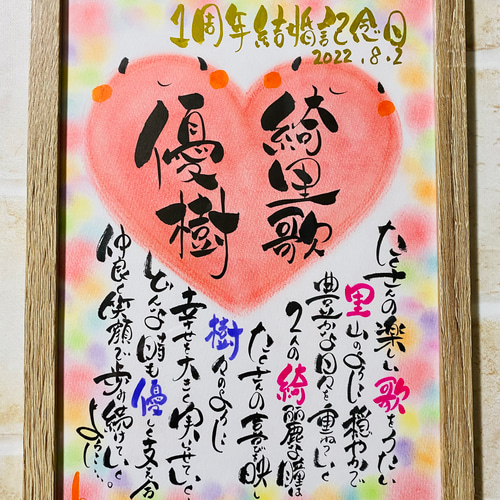 1周年結婚記念日
2022.8.2
綺里歌
優樹
たくさんの楽しい歌をうたい
里山のように穏やかで
豊かな日々を重ねていく
2人の綺麗な瞳は
たくさんの喜び映し
樹々のように
幸せを大きく実らせていく
どんな時も優しく支え合
仲良く笑顔で歩み続けていく
ように…